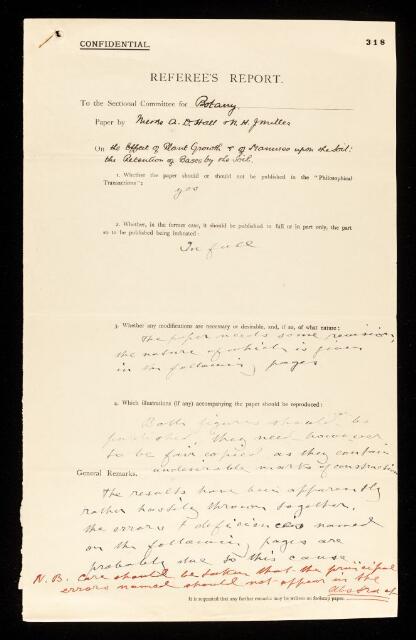 CONFIDENTIAL.
318
REFEREE'S REPORT.
To the Sectional Committee for Botany.
Paper by Messrs A. D. Hall & N. H. J. Miller
On the Effect of Plant Growth & of Manures upon the Soil:
the Retention of Bases by the Soil.
1. Whether the paper should or should not be published in the "Philosophical
Transactions":
yes
2. Whether, in the former case, it should be published in full or in part only, the part
so to be published being indicated:
In full
3. Whether any modifications are necessary or desirable, and, if so, of what nature:
The paper needs some revision,
the nature of which is given
in the following pages
4. Which illustrations (if any) accompanying the paper should be reproduced:
Both figures should be
published, they need however
to be fair copied as they contain
General Remarks. undesirable marks of construction
The results have been apparently
rather hastily thrown together,
the errors & deficiencies named
on the following pages are
probably due to this cause
N.B. Care should be taken that the principal
errors named should not appear in the
Abstract
It is requested that any further remarks may be written on following paper.